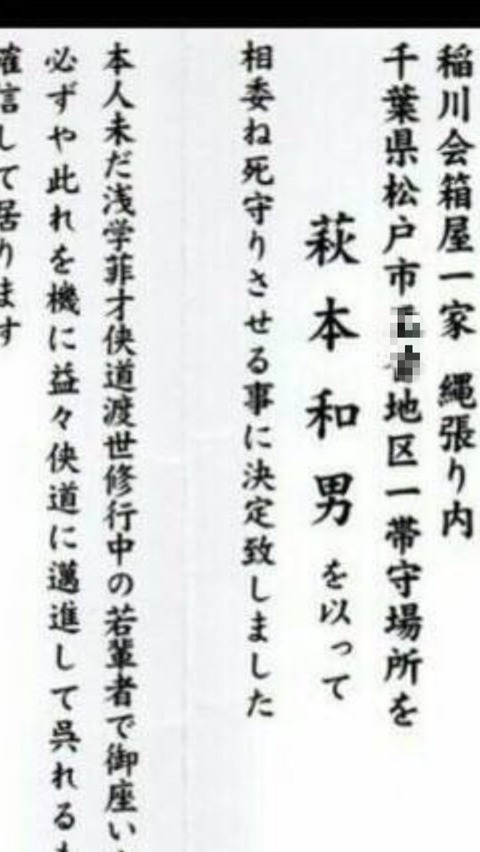 稲川会箱屋一家　縄張り内
千葉県松戸市地区一帯守場所を
萩本和男を以って
相委ね死守りさせる事に決定致しました
本人未だ浅学菲才侠道渡世修行中の若輩者で御座い
必ずや此れを機に益々侠道に邁進して呉れるも
確言して居ります